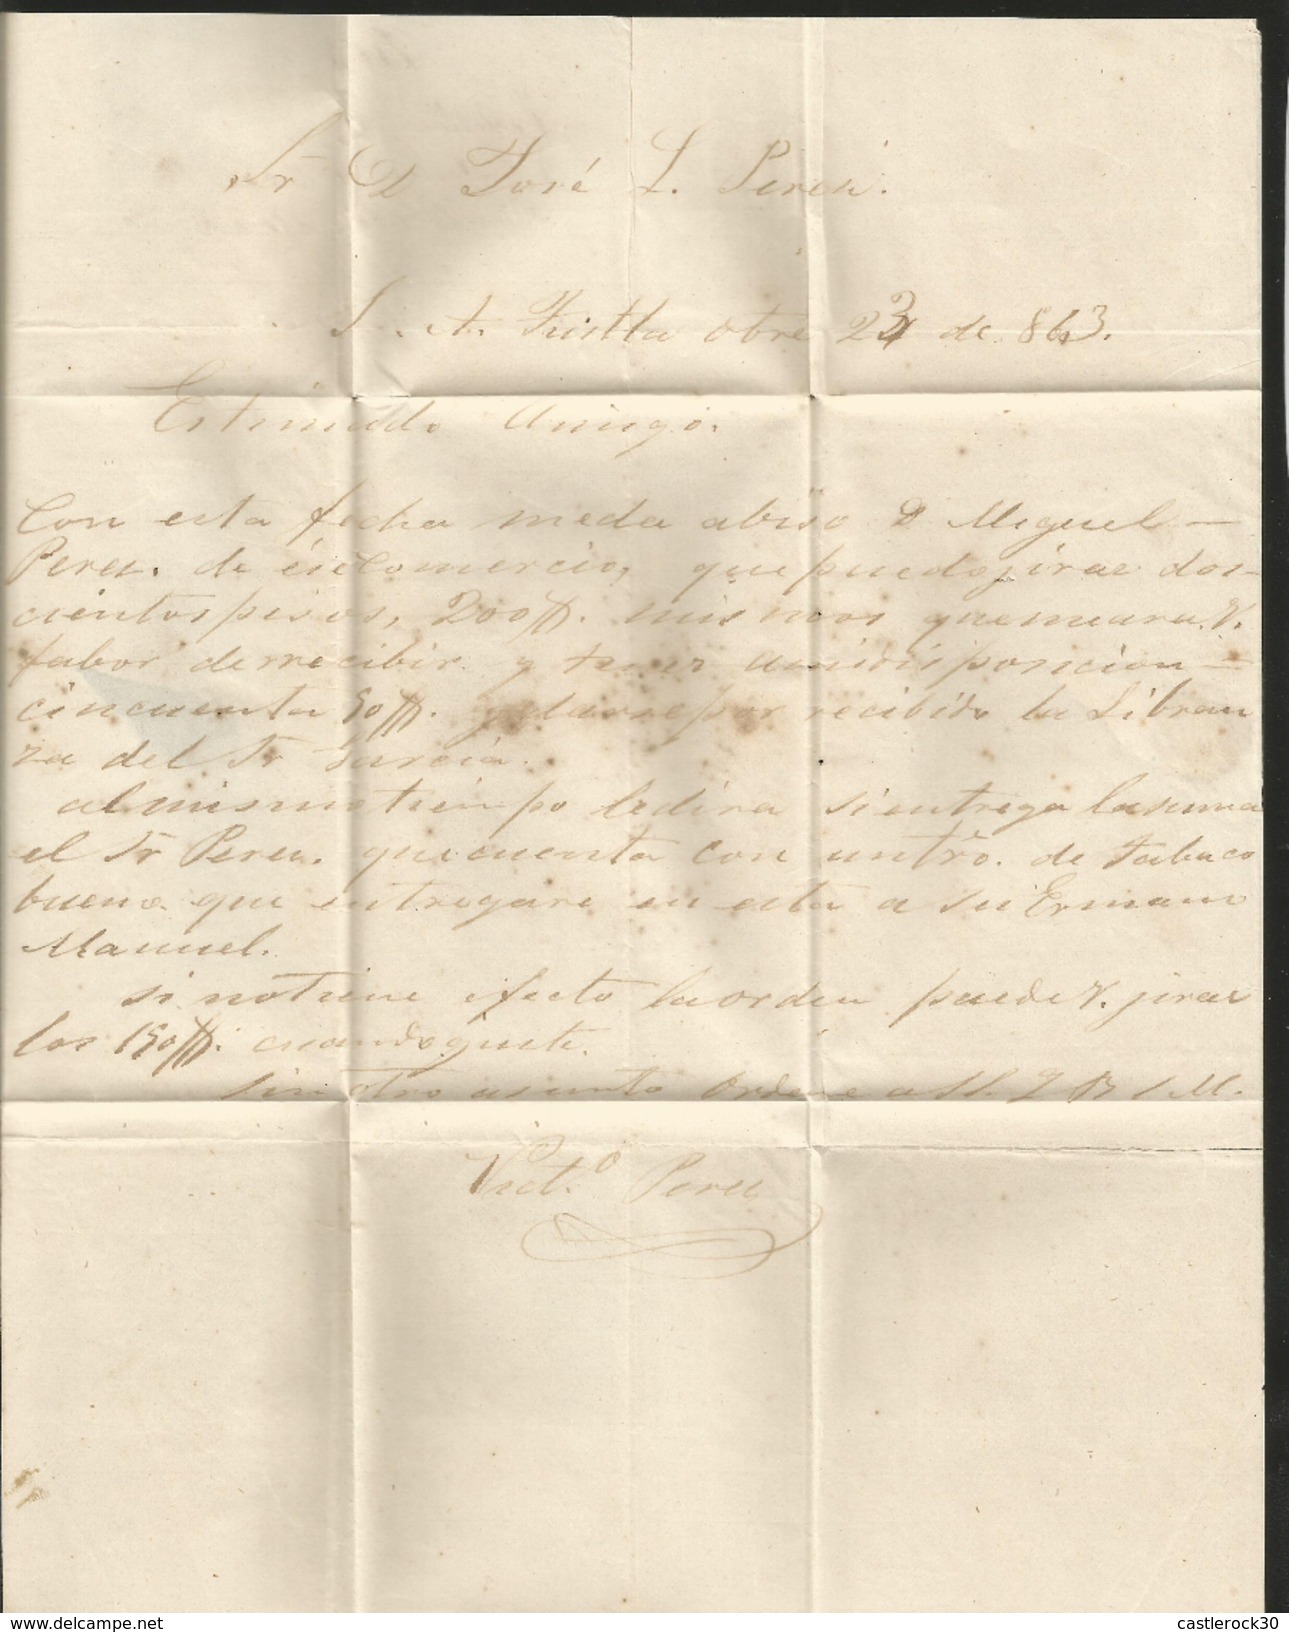 Sr D José L. Perez.
S. A. Tustla Obre 23 de 863.
Estimado Amigo.
Con esta fecha meda abiso D Miguel
Perez. de ese Comercio, que puedo jirar dos-
cientos pesos, 200 $. mismos que meara V.
fabor de rrecibir. y tener amidisposicion
cincuenta 50 $. y darse por recibido la Libran
za del Sr Garcia.
al mismo tiempo ledira si entrega la suma
el Sr Perez. que cuenta con untro. de tabaco
bueno. que entregare en esta a su Ermano
Manuel.
si notiene efecto la orden puede V. jirar
los 150 $. cuando guste.
sin otro asunto Ordene a SS. Q B S M.
Vict.o Perez
www.delcampe.net
castlerock30